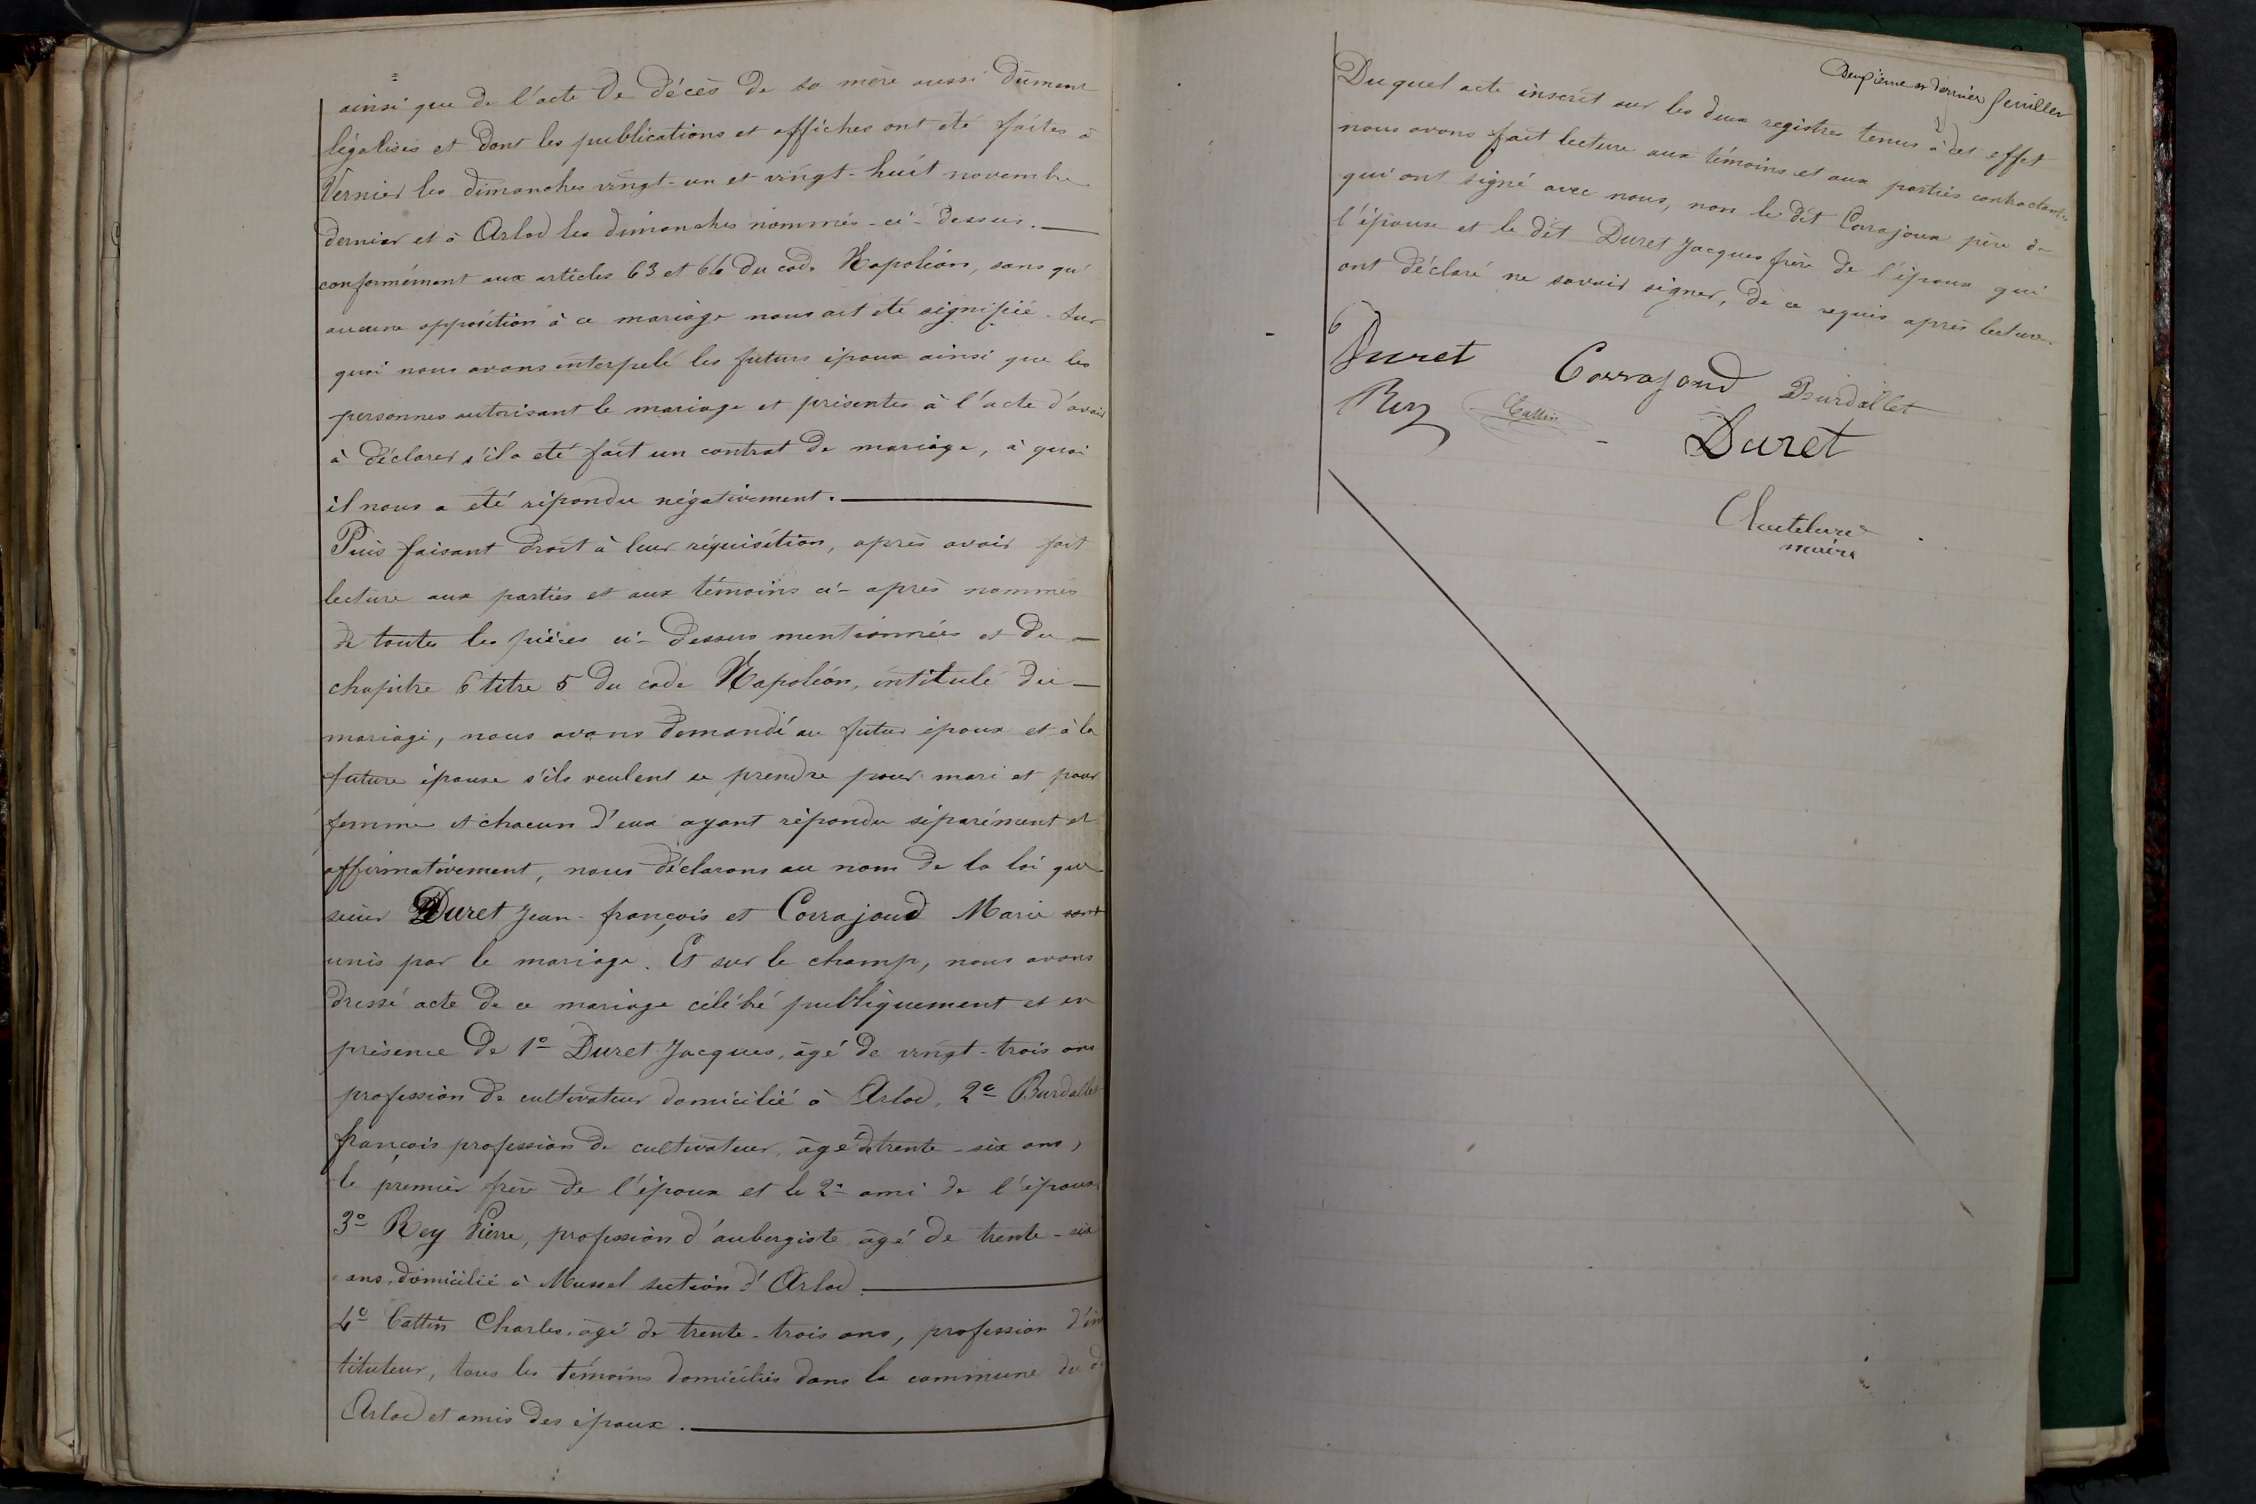 ainsi que de l'acte de décès de sa mère aussi dûment
légalisés et dont les publications et affiches ont été faites à
Vernier les dimanches vingt-un et vingt-huit novembre
dernier et à Arlod les dimanches nommés-ci-dessus.
conformément aux articles 63 et 64 du code Napoléon, sans qu'
aucune opposition à ce mariage nous ait été signifiée. Sur
quoi nous avons interpelé les futurs époux ainsi que les
personnes autorisant le mariage et présentes à l'acte d'avoir
à déclarer s'il a été fait un contrat de mariage, à quoi
il nous a été répondu négativement.
Puis faisant droit à leur réquisition, après avoir fait
lecture aux parties et aux témoins ci-après nommés
de toutes les pièces ci-dessus mentionnées et du
chapitre 6 titre 5 du code Napoléon, intitulé du
mariage, nous avons demandé au futur époux et à la
future épouse s'ils veulent se prendre pour mari et pour
femme et chacun d'eux ayant répondu séparément et
affirmativement, nous déclarons au nom de la loi que
sieur Duret Jean-françois et Corrajoud Marie sont
unis par le mariage. Et sur le champ, nous avons
dressé acte de ce mariage célébré publiquement et en
présence de 1º Duret Jacques, âgé de vingt-trois ans
profession de cultivateur domicilié à Arlod, 2º Burdallet
françois profession de cultivateur, âgé de trente-six ans,
le premier frère de l'époux et le 2º ami de l'époux
3º Rey Pierre, profession d'aubergiste âgé de trente-six
ans, domicilié à Mussel section d'Arlod
4º Cattin Charles, âgé de trente-trois ans, profession d'ins
tituteur, tous les témoins domiciliés dans la commune
Arlod et amis des époux.
Deuxième et dernier feuillet
Duquel acte inscrit sur les deux registres tenus à cet effet
nous avons fait lecture aux témoins et aux parties contractantes
qui ont signé avec nous, non le dit Corrajoux père de
l'épouse et le dit Duret Jacques frère de l'époux qui
ont déclaré ne savoir signer, de ce requis après lecture.
Duret Corrajoud Burdallet
Rey Cattin Duret
maire